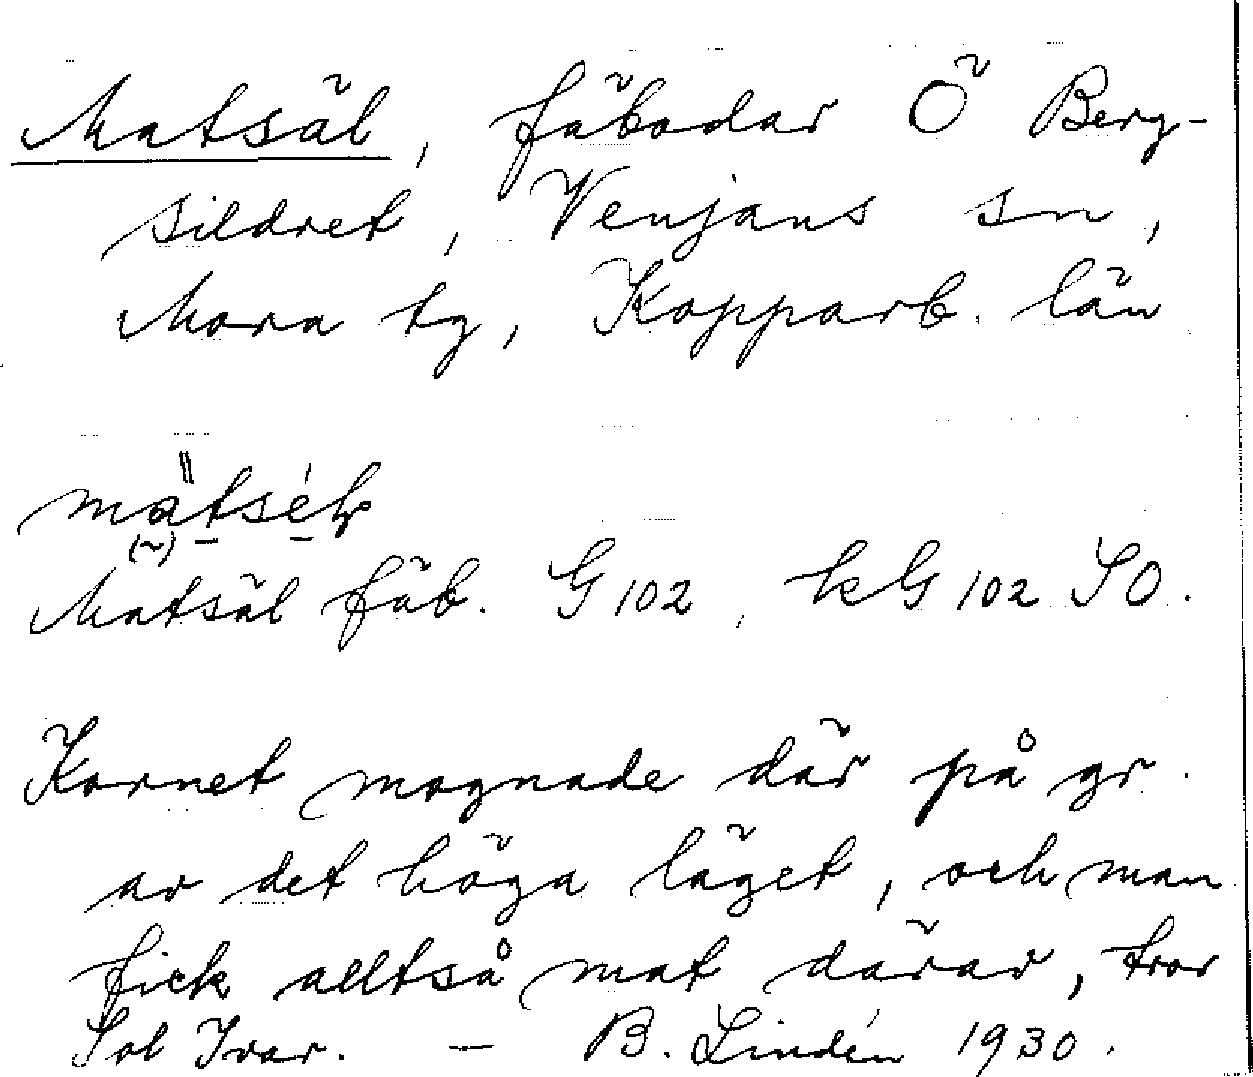 Matsäl, fäbodar Ö Berg-
sildret, Venjans sn,
Mora tg, Kopparb. län
Matsäl fäb. G 102, kG 102 SO.
Kornet mognade där på gr.
av det höga läget, och man
fick alltså mat därav, tror
Sol Ivar. — B. Lindén 1930.